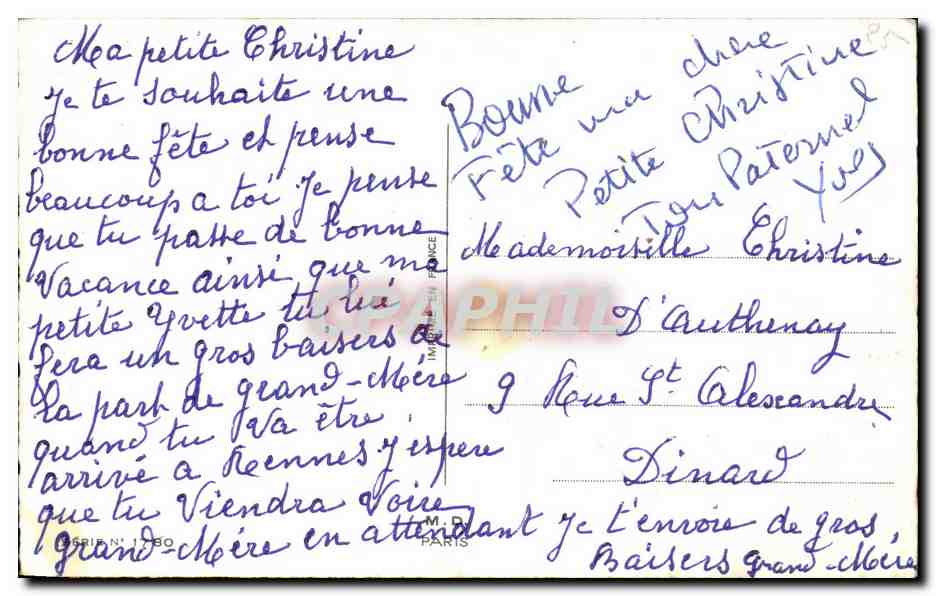 Ma petite Christine
Je te souhaite une
bonne fête et pense
beaucoup a toi je pense
que tu passe de bonne
Vacance ainsi que ma
petite Yvette tu lui
fera un gros baisers de
la part de grand-Mére
quand tu Va être
arrivé a Rennes j'espere
que tu Viendra Voire
grand-Mére en attendant je t'envoie de gros
Baisers grand-Mére
Bonne
Fête ma chere
Petite Christine
Ton Paternel
Yves
Mademoiselle Christine
D'Authenay
9 Rue St. Alexandre
Dinard
IMPRIMÉ EN FRANCE
CPAPHIL
SERIE N°
M.D.
PARIS